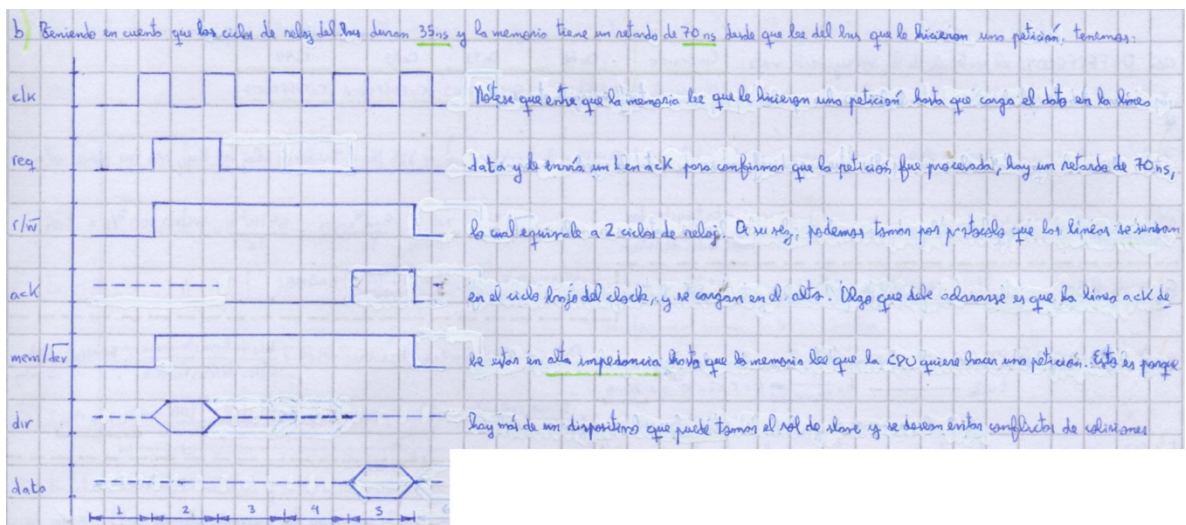 b) Teniendo en cuenta que los ciclos de reloj del bus duran 35ns y la memoria tiene un retardo de 70 ns desde que lee del bus que le hicieron una petición, tenemos:
clk
Nótese que entre que la memoria lee que le hicieron una petición hasta que carga el dato en la línea
req
data y le envía un 1 en ack para confirmar que la petición fue procesada, hay un retardo de 70 ns,
r/w̅
lo cual equivale a 2 ciclos de reloj. A su vez, podemos tomar por protocolo que las líneas se
en el ciclo bajo del clock, y se cargan en el alto. Algo que debe aclararse es que la línea ack de-
ack
mem/d̅e̅v̅
be estar en alta impedancia hasta que la memoria lee que la CPU quiere hacer una petición. Esto es porque
dir
hay más de un dispositivo que puede tomar el rol de slave y se desean evitar conflictos de colisiones
data
1 2 3 4 5